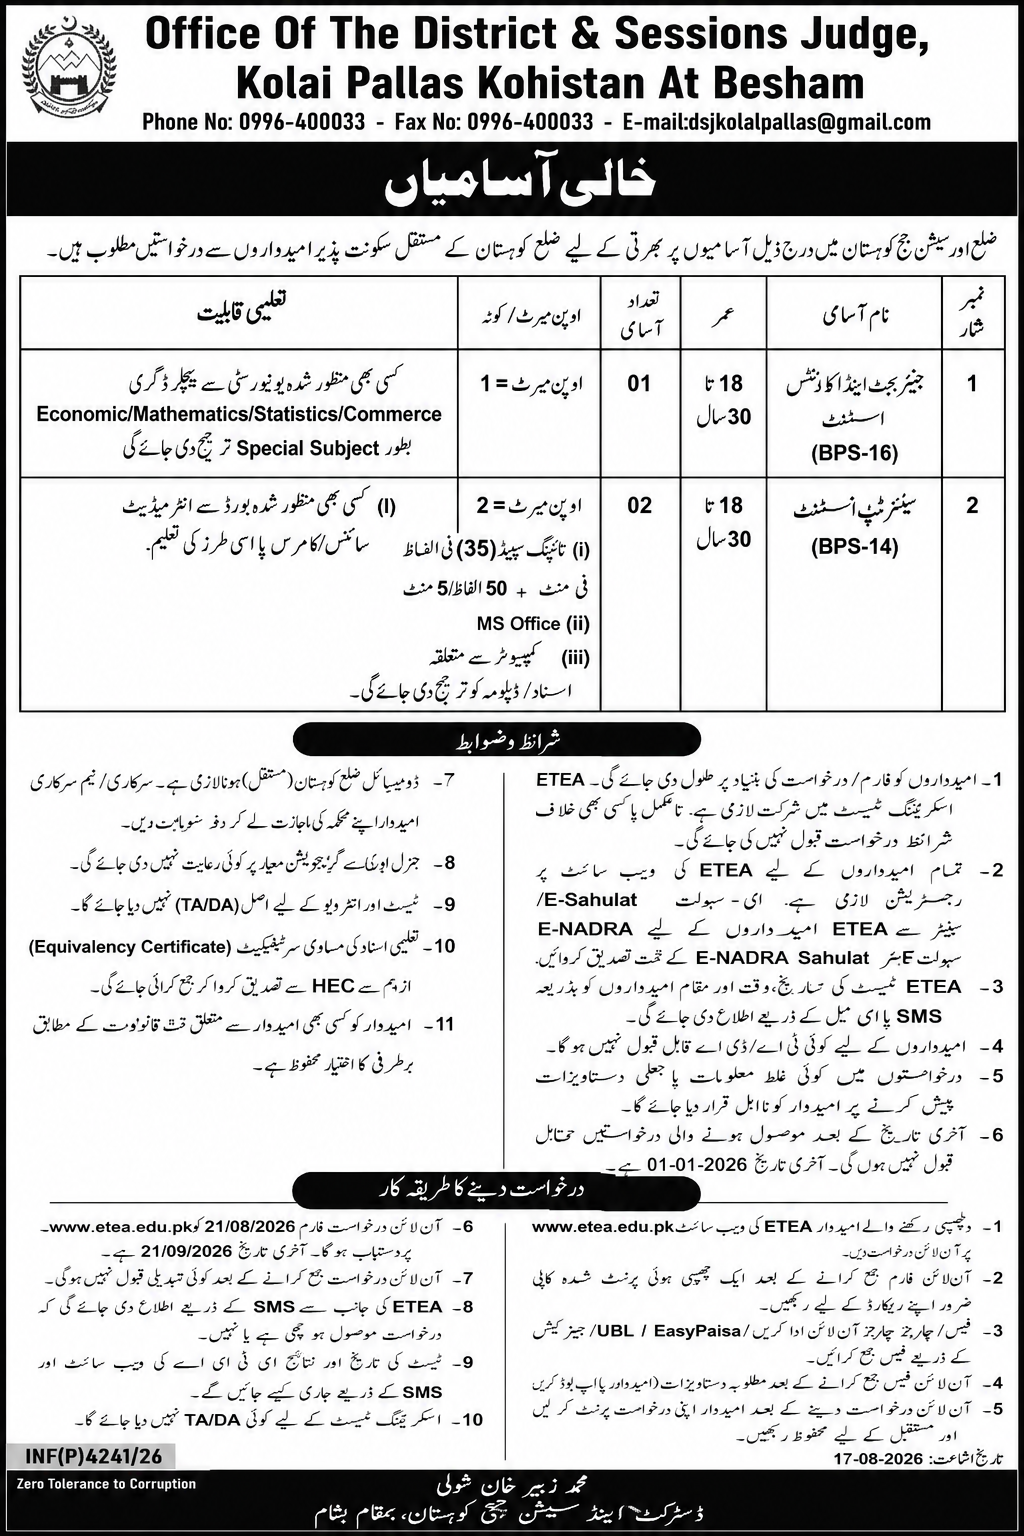 Office Of The District & Sessions Judge,
Kolai Pallas Kohistan At Besham
Phone No: 0996-400033 - Fax No: 0996-400033 - E-mail:dsjkolalpallas@gmail.com
خالی آسامیاں
ضلع اور سیشن جج کوہستان میں درج ذیل آسامیوں پر بھرتی کے لیے ضلع کوہستان کے مستقل سکونت پذیر امیدواروں سے درخواستیں مطلوب ہیں۔
نمبر شار
نام آسای
عمر
تعداد آسای
اوپن میرٹ/ کوٹہ
تعلیمی قابلیت
1
جنیئر بجٹ اینڈ اکاؤنٹس
اسسٹنٹ
(BPS-16)
18 تا
30 سال
01
اوپن میرٹ = 1
کسی بھی منظور شدہ یونیورسٹی سے بیچلر ڈگری
Economic/Mathematics/Statistics/Commerce
بطور Special Subject ترجیح دی جائے گی
2
سینئر ٹپ اسسٹنٹ
(BPS-14)
18 تا
30 سال
02
اوپن میرٹ = 2
(i) ٹائپنگ سپیڈ (35) فی الفاظ
فی منٹ + 50 الفاظ/5 منٹ
MS Office (ii)
(iii) کمپیوٹر سے متعلقہ
اسناد/ ڈپلومہ کو ترجیح دی جائے گی۔
(I) کسی بھی منظور شدہ بورڈ سے انٹرمیڈیٹ
سائنس/کامرس یا اسی طرز کی تعلیم۔
شرائط وضوابط
1۔ امیدواروں کو فارم/ درخواست کی بنیاد پر طلول دی جائے گی۔ ETEA
اسکریننگ ٹیسٹ میں شرکت لازمی ہے۔ نامکمل یا کسی بھی خلاف
شرائط درخواست قبول نہیں کی جائے گی۔
2- تمام امیدواروں کے لیے ETEA کی ویب سائٹ پر
رجسٹریشن لازمی ہے۔ ای - سہولت E-Sahulat/
سینٹر سے ETEA امیدواروں کے لیے E-NADRA
سہولت E-NADRA Sahulat کے تحت تصدیق کروائیں۔
3- ETEA ٹیسٹ کی تاریخ، وقت اور مقام امیدواروں کو بذریعہ
SMS یا ای میل کے ذریعے اطلاع دی جائے گی۔
4- امیدواروں کے لیے کوئی ٹی اے/ ڈی اے قابل قبول نہیں ہو گا۔
5- درخواستوں میں کوئی غلط معلومات یا جعلی دستاویزات
پیش کرنے پر امیدوار کو نااہل قرار دیا جائے گا۔
6- آخری تاریخ کے بعد موصول ہونے والی درخواستیں
قبول نہیں ہوں گی۔ آخری تاریخ 01-01-2026 ہے۔
7- ڈومیسائل ضلع کوہستان (مستقل) ہونا لازمی ہے۔ سرکاری/ نیم سرکاری
امیدوار اپنے محکمہ کی اجازت لے کر
8- جنرل گریجویشن معیار پر کوئی رعایت نہیں دی جائے گی۔
9- ٹیسٹ اور انٹرویو کے لیے اصل (TA/DA) نہیں دیا جائے گا۔
10- تعلیمی اسناد کی مساوی سرٹیفیکیٹ (Equivalency Certificate)
HEC سے تصدیق کروا کر جمع کرائی جائے گی۔
11- امیدوار کو کسی بھی امیدوار سے متعلق کے مطابق
برطرفی کا اختیار محفوظ ہے۔
درخواست دینے کا طریقہ کار
1- دلچسپی رکھنے والے امیدوار ETEA کی ویب سائٹ www.etea.edu.pk
پر آن لائن درخواست دیں۔
2- آن لائن فارم جمع کرانے کے بعد ایک چھپی ہوئی پرنٹ شدہ کاپی
ضرور اپنے ریکارڈ کے لیے رکھیں۔
3- فیس/ چارجز چارجز آن لائن ادا کریں/ UBL / EasyPaisa/ جیزکیش
کے ذریعے فیس جمع کرائیں۔
4- آن لائن فیس جمع کرانے کے بعد مطلوبہ دستاویزات (امیدوار اپ لوڈ کریں
5- آن لائن درخواست دینے کے بعد امیدوار اپنی درخواست پرنٹ کر لیں
اور مستقبل کے لیے محفوظ رکھیں۔
تاریخ اشاعت: 17-08-2026
6- آن لائن درخواست فارم 21/08/2026 کو www.etea.edu.pk۔
پر دستیاب ہو گا۔ آخری تاریخ 21/09/2026 ہے۔
7- آن لائن درخواست جمع کرانے کے بعد کوئی تبدیلی قبول نہیں ہوگی۔
8- ETEA کی جانب سے SMS کے ذریعے اطلاع دی جائے گی کہ
درخواست موصول ہو چکی ہے یا نہیں۔
9- ٹیسٹ کی تاریخ اور نتائج ای ٹی ای اے کی ویب سائٹ اور
SMS کے ذریعے جاری کیے جائیں گے۔
10- اسکریننگ ٹیسٹ کے لیے کوئی TA/DA نہیں دیا جائے گا۔
INF(P)4241/26
Zero Tolerance to Corruption
محمد زبیر خان شولی
ڈسٹرکٹ اینڈ سیشن جج کوہستان، بمقام بشام